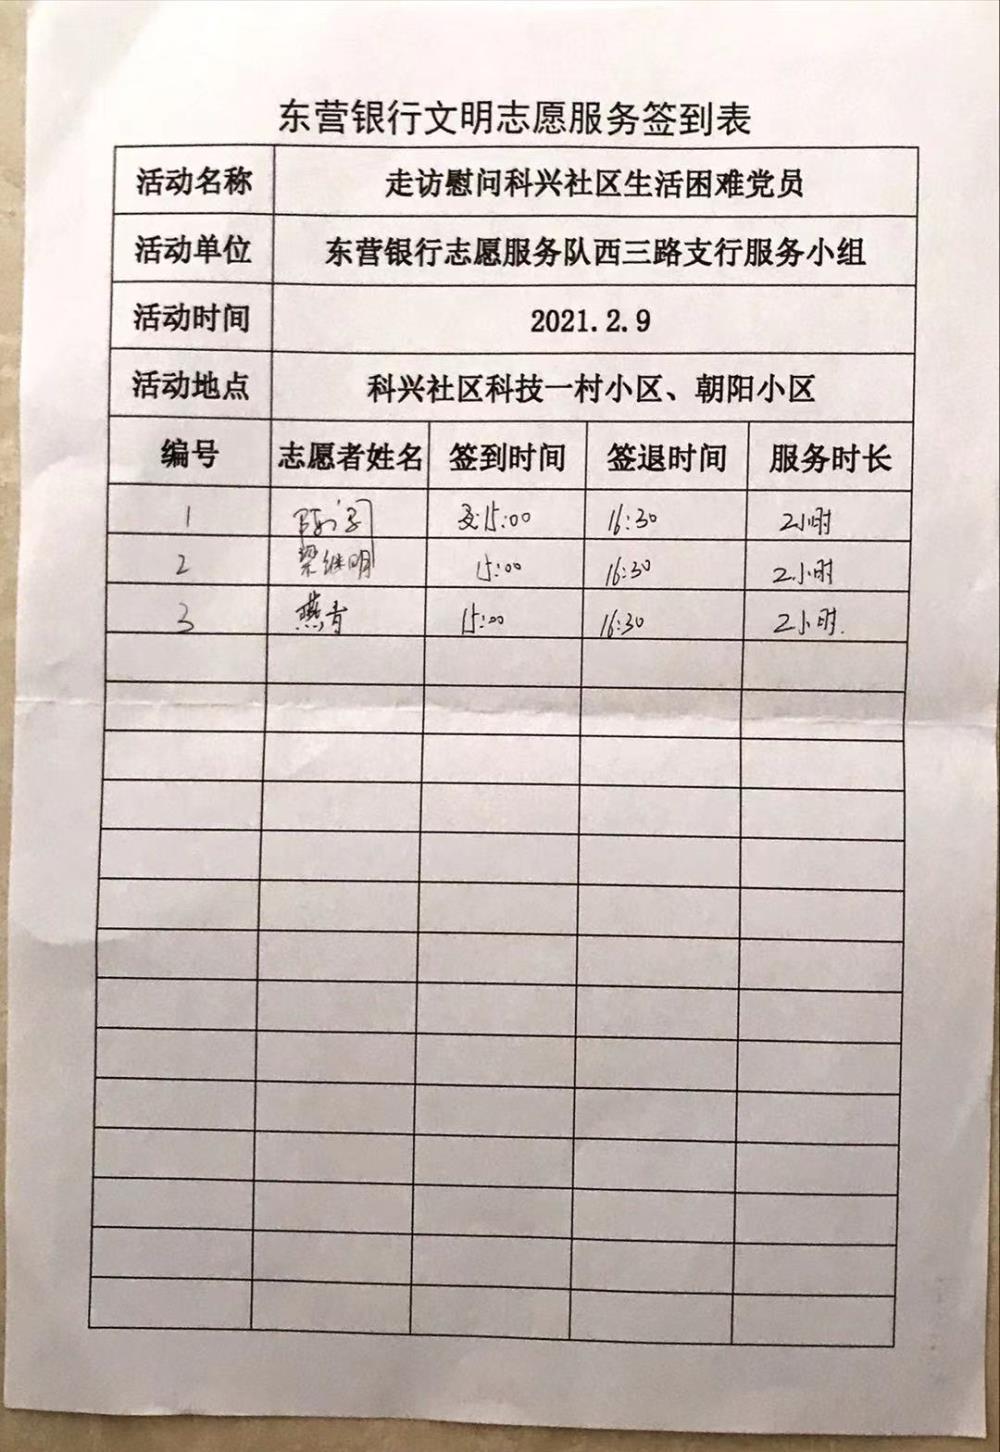 东营银行文明志愿服务签到表
活动名称 走访慰问科兴社区生活困难党员
活动单位 东营银行志愿服务队西三路支行服务小组
活动时间 2021.2.9
活动地点 科兴社区科技一村小区、朝阳小区
编号 志愿者姓名 签到时间 签退时间 服务时长
1 15:00 16:30 2小时
2 梁继明 15:00 16:30 2小时
3 燕青 15:00 16:30 2小时.